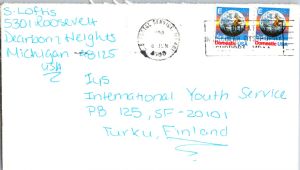 S. Loftis
5301 Roosevelt
Dearborn Heights
Michigan 48125
USA
E
Domestic USA
E
Domestic USA
Iys
International Youth Service
PB 125, SF-20101
Turku, Finland